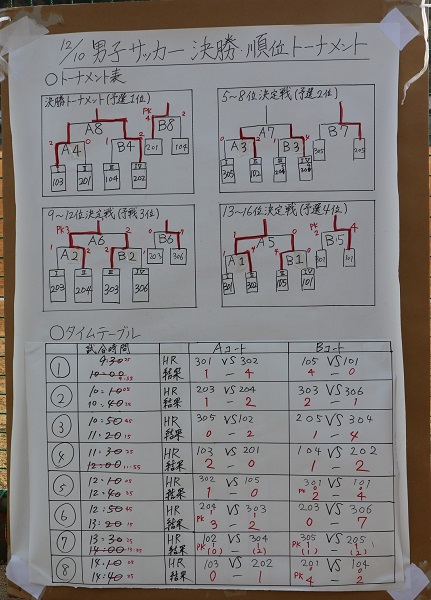 12/10 男子サッカー 決勝・順位トーナメント
○トーナメント表
決勝トーナメント(予選1位)
A8 B8
A4 B4 201 104
I II III IV
103 201 104 202
5~8位決定戦(予選2位)
A7 B7
A3 B3 305 205
305 102 205
9~12位決定戦(予戦3位)
PK3
A6 B6
A2 B2 203 306
203 204 303 306
13~16位決定戦(予選4位)
A5 B5
A1 B1
301 302 105 101
○タイムテーブル
試合時間 Aコート Bコート
① 9:30 HR 301 VS 302 105 VS 101
10:00 結果 1 - 4 4 - 0
② 10:10 HR 203 VS 204 303 VS 306
10:40 結果 1 - 2 2 - 1
③ 10:50 HR 305 VS 102 205 VS 304
11:20 結果 0 - 2 1 - 4
④ 11:30 HR 103 VS 201 104 VS 202
12:00 結果 2 - 0 1 - 2
⑤ 12:10 HR 302 VS 105 301 VS 101
12:40 結果 1 - 0 PK 2 - 4
⑥ 12:50 HR 204 VS 303 203 VS 306
13:20 結果 PK 3 - 2 0 - 7
⑦ 13:30 HR 102 VS 304 305 VS 205
14:00 結果 PK
⑧ 14:10 HR 103 VS 202 201 VS 104
14:40 結果 0 - 1 PK 4 - 2